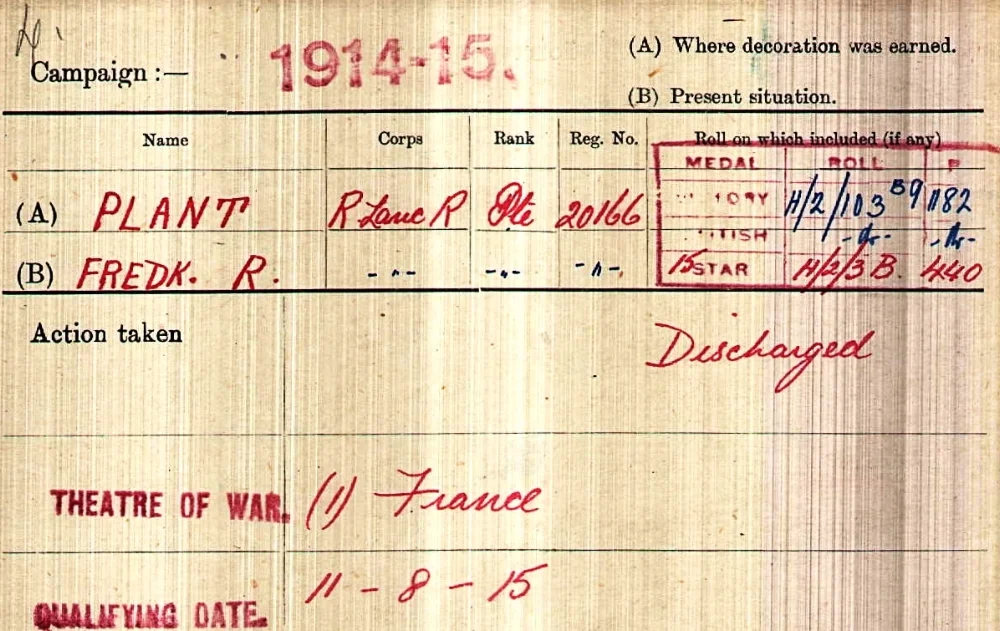 (A) Where decoration was earned.
Campaign :— 1914-15.
(B) Present situation.
Name Corps Rank Reg. No. Roll on which included (if any)
MEDAL ROLL P
(A) PLANT R Lanc R Pte 20166 H/2/103 B9 1182
-do- -do-
(B) FREDK. R. -"- -"- -"- 15 STAR H/2/3 B. 440
Action taken Discharged
THEATRE OF WAR. (1) France
QUALIFYING DATE. 11 - 8 - 15